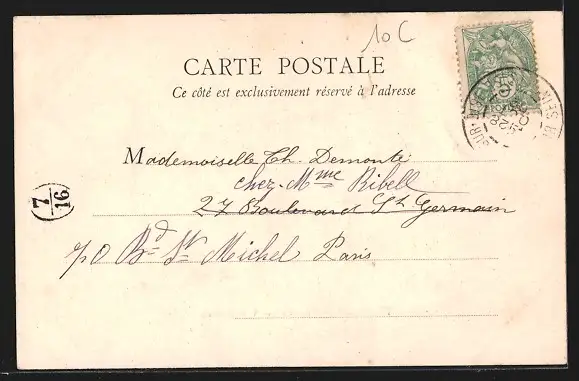 10 C
CARTE POSTALE
Ce côté est exclusivement réservé à l'adresse
Mademoiselle Th. Demonte
chez Mme Ribell
27 Boulevard St Germain
Bd St Michel Paris
7
16